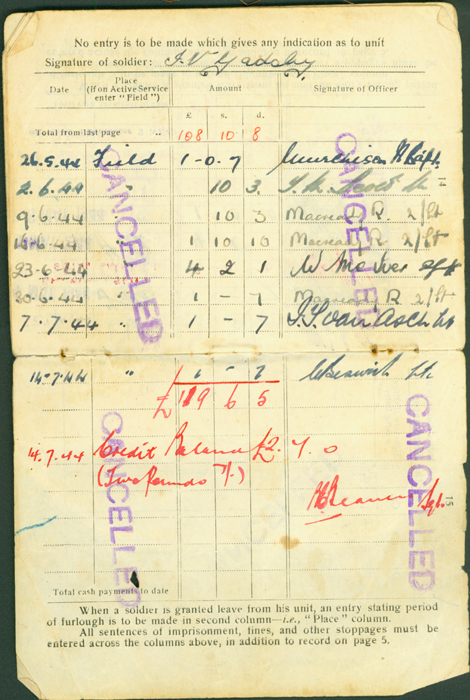 No entry is to be made which gives any indication as to unit
Signature of soldier:
Date Place (if on Active Service enter "Field") Amount Signature of Officer
£ s. d.
Total from last page .. 108 10 8
26.5.44 Field 1-0.7 Murchison
2.6.44 " 10 3.
9-6-44 " 10 3 Macready R. 2/Lt
" 1 10 10 Macready R. 2/Lt
23-6-44 " 4 2 1
30.6.44 " 1 - 7 Macready R 2/Lt
7.7.44 " 1 - 7 van Asch Lt
14.7.44 " 1 - 7 Lt
£119 6 5
14.7.44 Credit Balance £2. 7. 0
(Two Pounds 7/-)
CANCELLED
CANCELLED
CANCELLED
CANCELLED
Total cash payments to date
When a soldier is granted leave from his unit, an entry stating period
of furlough is to be made in second column—i.e., "Place" column.
All sentences of imprisonment, fines, and other stoppages must be
entered across the columns above, in addition to record on page 5.